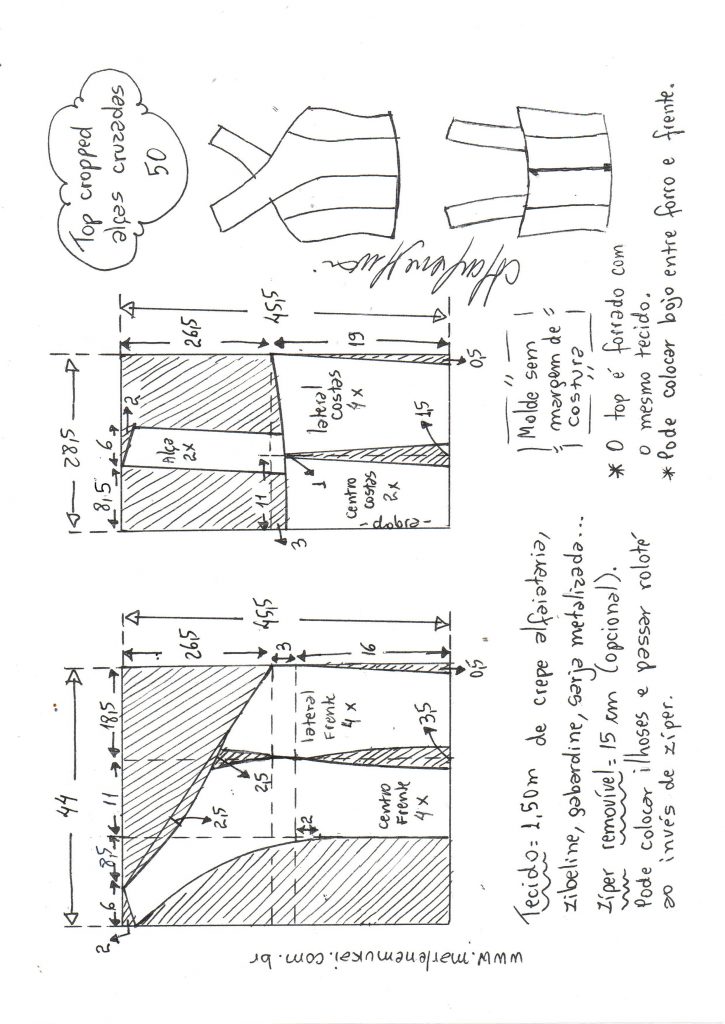 Top cropped
alças cruzadas
50
44
6
8,5
11
18,5
2
2,5
2,5
26,5
3
16
45,5
2
Centro
Frente
4x
lateral
Frente
4x
3,5
0,5
28,5
8,5
6
2
Alça
2x
26,5
45,5
19
11
3
1
Centro
costas
2x
-dobra-
lateral
costas
4x
1,5
0,5
Molde sem
margem de
costura
* O top é forrado com
o mesmo tecido.
* Pode colocar bojo entre forro e frente.
Tecido = 1,50m de crepe alfaiataria,
zibeline, gabardine, sarja metalizada...
Zíper removível = 15 cm (opcional).
Pode colocar ilhoses e passar roloté
ao invés de zíper.
www.marlenemukai.com.br